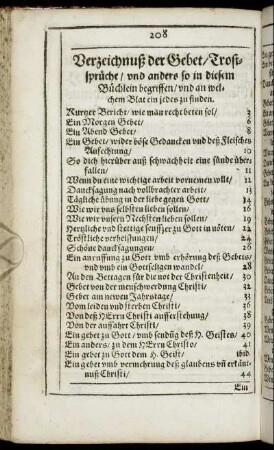 208
Verzeichnuß der Gebet/ Trost-
sprüche/ vnd anders so in diesem
Büchlein begriffen/ vnd an wel-
chem Blat ein jedes zu finden.
Kurtzer Bericht/ wie man recht beten sol/ 3
Ein Morgen Gebet/ 6
Ein Abend Gebet/ 8
Ein Gebet/ wider böse Gedancken vnd deß Fleisches
Anfechtung/ 10
So dich hierüber auß schwachheit eine sünde über-
fallen/ 11
Wenn du eine wichtige arbeit vornemen wilt/ 12
Dancksagung nach vollbrachter arbeit/ 13
Tägliche übung in der liebe gegen Gott/ 14
Wie wir vns selbsten lieben sollen/ 16
Wie wir vnsern Nechsten lieben sollen/ 19
Hertzliche vnd stettige seufftzer zu Gott in nöten/ 22
Tröstliche verheissungen/ 24
Schöne dancksagungen/ 26
Ein anruffung zu Gott vmb erhörung deß Gebets/
vnd vmb ein Gottseligen wandel/ 28
An den Bettagen für die not der Christenheit/ 30
Gebet von der menschwerdung Christi/ 32
Gebet am neuen Jahrstage/ 33
Vom leiden vnd sterben Christi/ 36
Von deß HErrn Christi aufferstehung/ 38
Von der auffahrt Christi/ 39
Ein gebet zu Gott/ vmb sendūg deß H. Geistes/ 40
Ein anders/ zu dem HErrn Christo/ 41
Ein gebet zu Gott dem H. Geist/ ibid.
Ein gebet vmb vermehrung deß glaubens vñ erkänt-
nuß Christi/ 44
Ein